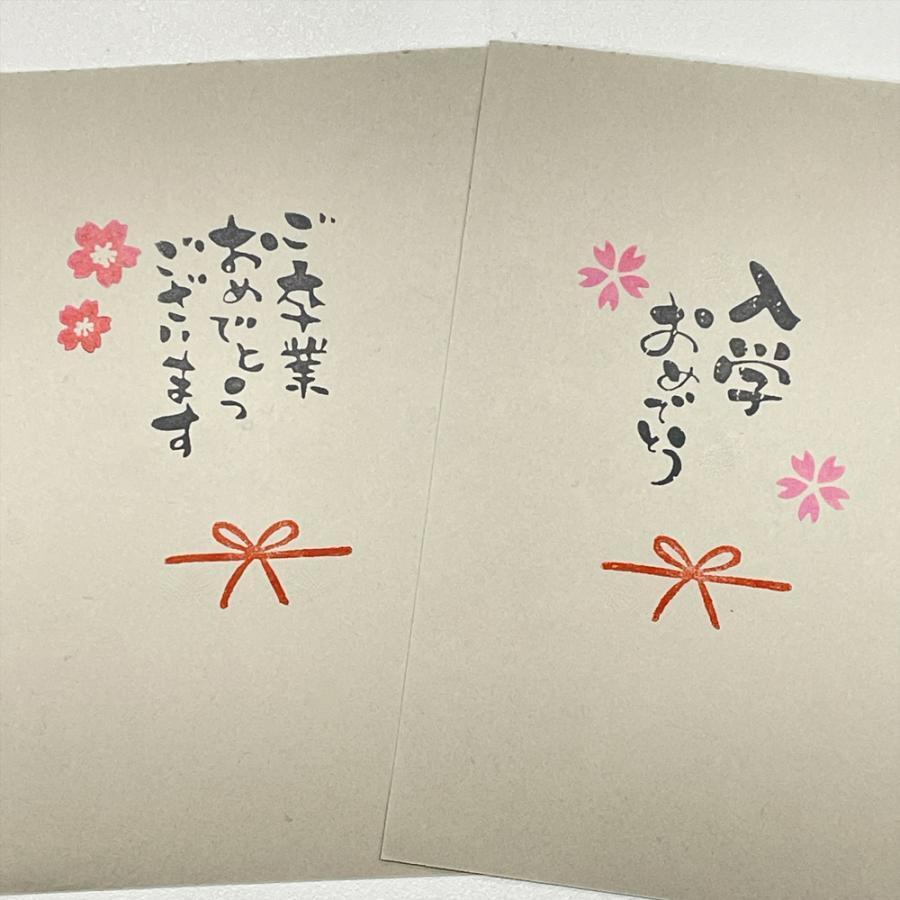 ご卒業
おめでとう
ございます
入学
おめでとう